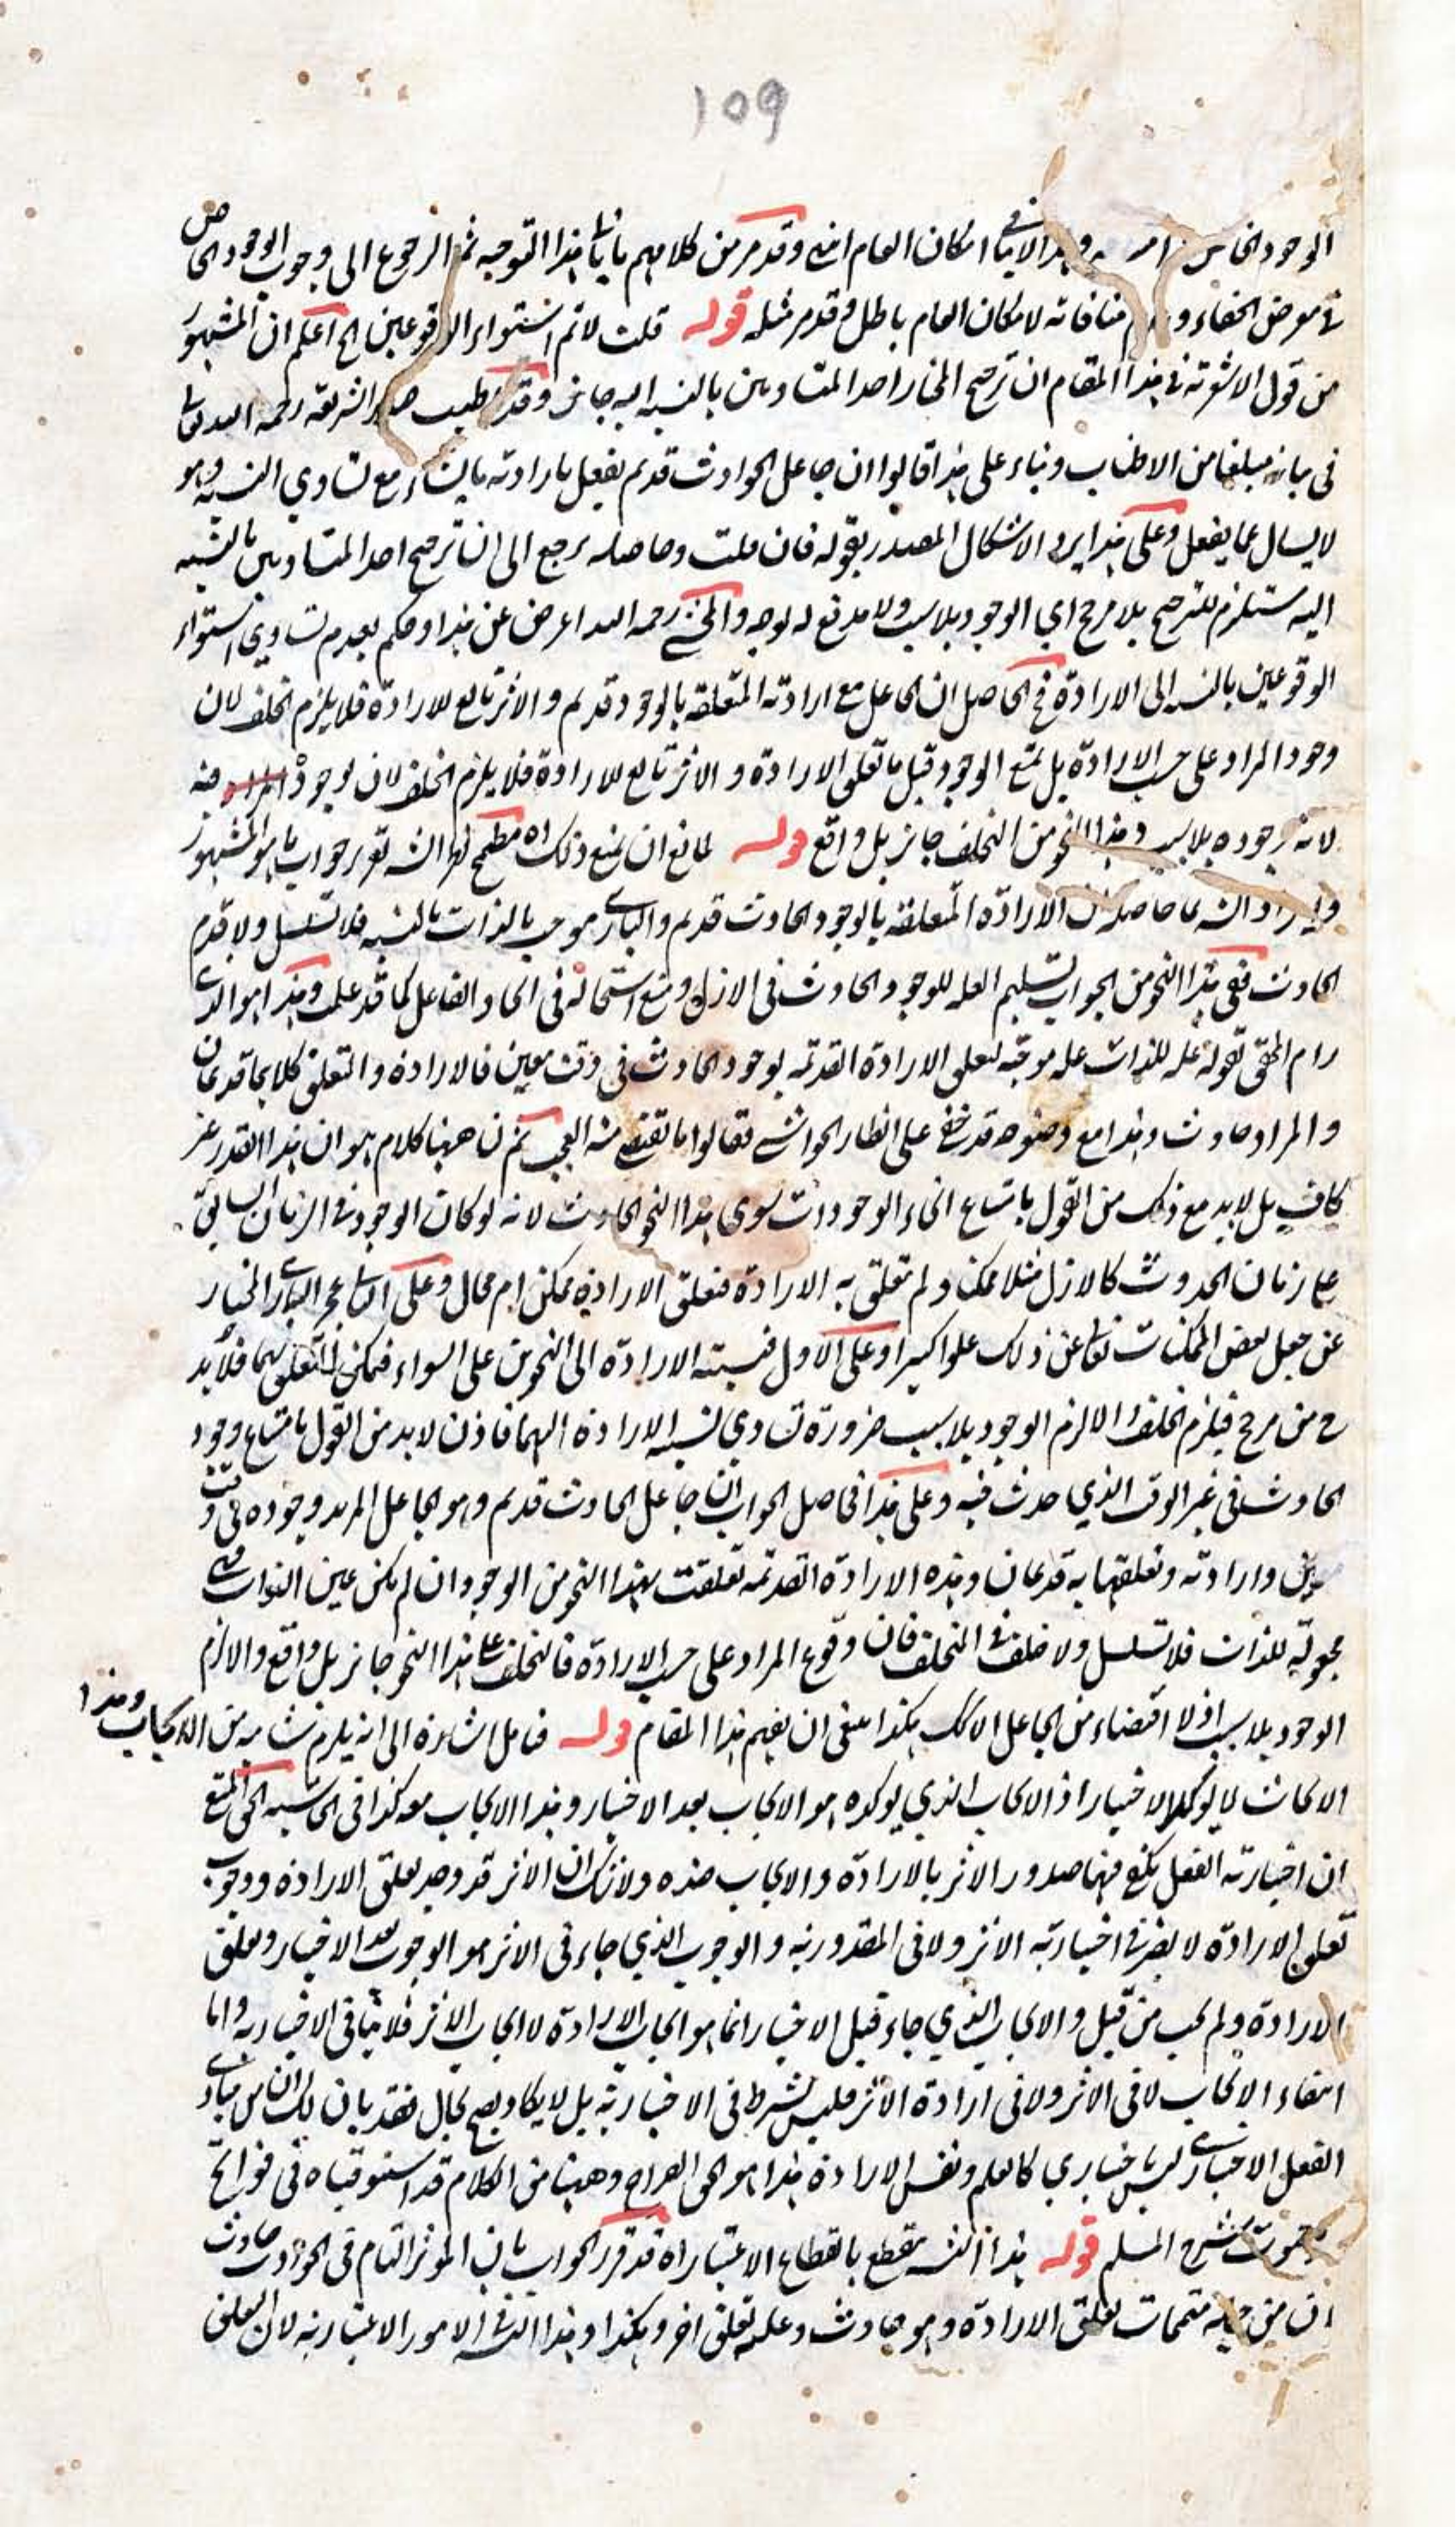 ١٥٩
الوجود الخاص وهذا لا ينافي امكان العام انتهى وقد مر من كلامهم ما ينافي هذا التوجيه ثم الرجوع الى وجوب الوجود الخاص
في معرض الخفاء و منافاته لامكان العام باطل وقد مر مثله قوله قلت لا نم استواء الوقوعين الخ اعلم ان المشهور
من قول الاشعرية في هذا المقام ان ترجيح المختار احد المتساويين بالنسبة اليه جائز وقد اطنب صدر الشريعة رحمه الله تعالى
في بيانه مبلغا من الاطناب وبناء على هذا قالوا ان جاعل الحوادث قديم يفعل بارادته ما يشاء مع تساوي النسبة وهو
لا يسال عما يفعل وعلى هذا يرد الاشكال المصدر بقوله فان قلت وحاصله يرجع الى ان ترجيح احد المتساويين بالنسبة
اليه مستلزم للترجيح بلا مرجح اي الوجود بلا سبب ولا مدفع له بوجه والمحشي رحمه الله اعرض عن هذا وحكم بعدم تساوي استواء
الوقوعين بالنسبة الى الارادة فح الحاصل ان الجاعل مع ارادته المتعلقة بالوجود قديم والاثر تابع للارادة فلا يلزم الخلف لان
وجود المراد على حسب الارادة بل يمتنع الوجود قبل ما تعلق الارادة والاثر تابع للارادة فلا يلزم الخلف لان لوجود منه
لانه وجوده بلا سبب وهذا النحو من التخلف جائز بل واقع قوله لمانع ان يمنع ذلك اه مطمح تقرير جواب ما هو المشهور
ان الارادة المتعلقة بالوجود الحادث قديم والباري موجب بالذات بالنسبة فلا تسلسل ولا قدم
الحادث ففي هذا النحو من الجواب تسليم العلة للوجود الحادث في الازل ومنع استحالته في ايجاد الفاعل كما قد علمت وهذا هو الذي
رام المحقق بقوله علة للذات علة موجبة لتعلق الارادة القديمة بوجود الحادث في وقت معين فالارادة والتعلق كلاهما قديمان
والمراد حادث وهذا مع وضوحه قد خفي على انظار الحواشي فقالوا ما تقضى منه العجب نعم ان ههنا كلام هو ان هذا القدر غير
كاف بل لابد مع ذلك من القول بامتناع انحاء الوجودات سوى هذا النحو الحادث لانه لو كان الوجود في الزمان السابق
على زمان الحدوث كالازل مثلا ممكنا ولم تتعلق به الارادة فتعلق الارادة ممكن ام محال وعلى الثاني عجز الباري المختار
عن جعل بعض الممكنات تعالى عن ذلك علوا كبيرا وعلى الاول فنسبته الارادة الى النحوين على السواء فيمكن التعلق بهما فلا بد
ح من مرجح فيلزم الخلف والا لزم الوجود بلا سبب ضرورة تساوي نسبة الارادة اليهما فاذن لابد من القول بامتناع وجود
الحادث في غير الوقت الذي حدث فيه وعلى هذا فحاصل الجواب ان جاعل الحادث قديم وهو الجاعل المريد وجوده في وقت
معين وارادته وتعلقها به قديمان وهذه الارادة القديمة تعلقت بهذا النحو من الوجود ان لم يكن عين الذات فهي
مجعولة للذات فلا تسلسل ولا خلف في التخلف فان وقوع المراد على حسب الارادة فالتخلف على هذا النحو جائز بل واقع والا لزم
الوجود بلا سبب اذ لا اقتضاء من الجاعل الا كك هكذا ينبغي ان يفهم هذا المقام قوله فتامل اشارة الى انه يلزم شائبة من الايجاب وهذا
الايجاب لا يؤكد الاختيار اذ الايجاب الذي يوكده هو الايجاب بعد الاختيار وهذا الايجاب معه كذا في الحاشية الحق المتبع
ان اختيارية الفعل يكفي فيها صدور الاثر بالارادة والايجاب ضده ولا شك ان الاثر قد وجد بتعلق الارادة ووجوب
تعلق الارادة لا يضر في اختيارية الاثر ولا في المقدورية والوجوب الذي جاء في الاثر هو الوجوب بعد الاختيار وتعلق
الارادة ولم يجب من قبل والايجاب الذي جاء قبل الاختيار انما هو ايجاب الارادة لا ايجاب الاثر فلا ينافي الاختيارية واما
انتفاء الايجاب لا في الاثر ولا في ارادة الاثر فليس بشرط في الاختيارية بل لا يكاد يصح بحال فقد بان لك ان من مبادي
الفعل الاختياري ليس اختياري كالعلم ونفس الارادة هذا هو الحق الصراح وههنا من الكلام قد استوفيناه في فواتح
الرحموت شرح المسلم قوله هذا التس ينقطع بانقطاع الاعتبار اه قد قرر الجواب بان المؤثر التام في الحوادث حادث
ان من جملة متممات تعلق الارادة وهو حادث وعلة تعلق اخر وهكذا وهذا التس في الامور الاعتبارية لان التعلق